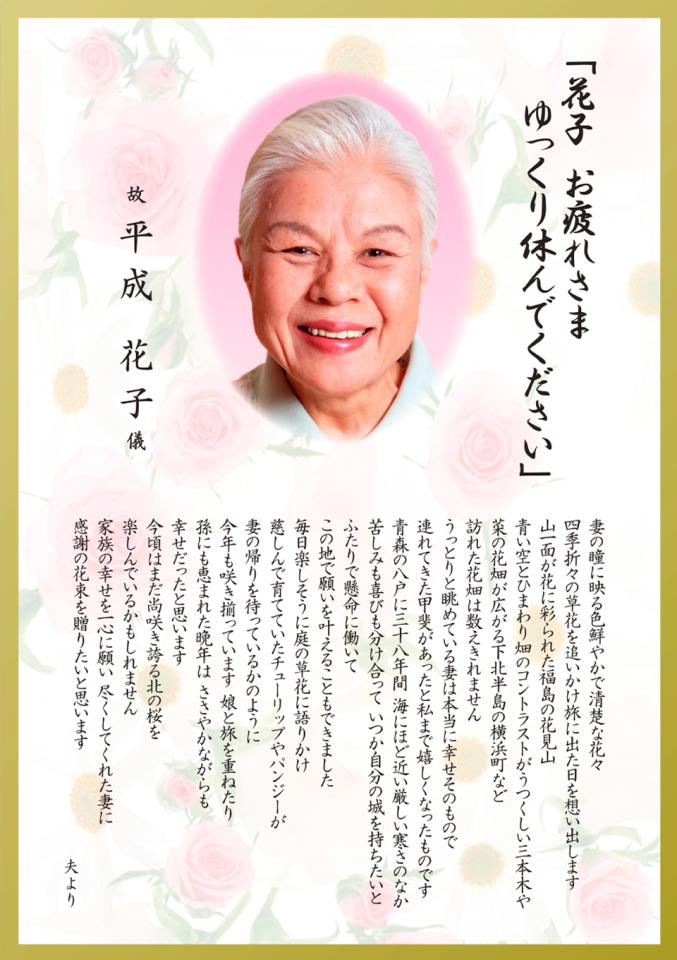 「花子 お疲れさま
ゆっくり休んでください」
故 平成 花子 儀
妻の瞳に映る色鮮やかで清楚な花々
四季折々の草花を追いかけ旅に出た日を想い出します
山一面が花に彩られた福島の花見山
青い空とひまわり畑のコントラストがうつくしい三本木や
菜の花畑が広がる下北半島の横浜町など
訪れた花畑は数えきれません
うっとりと眺めている妻は本当に幸せそのもので
連れてきた甲斐があったと私まで嬉しくなったものです
青森の八戸に三十八年間 海にほど近い厳しい寒さのなか
苦しみも喜びも分け合って いつか自分の城を持ちたいと
ふたりで懸命に働いて
この地で願いを叶えることもできました
毎日楽しそうに庭の草花に語りかけ
慈しんで育てていたチューリップやパンジーが
妻の帰りを待っているかのように
今年も咲き揃っています 娘と旅を重ねたり
孫にも恵まれた晩年は ささやかながらも
幸せだったと思います
今頃はまだ尚咲き誇る北の桜を
楽しんでいるかもしれません
家族の幸せを一心に願い 尽くしてくれた妻に
感謝の花束を贈りたいと思います
夫より